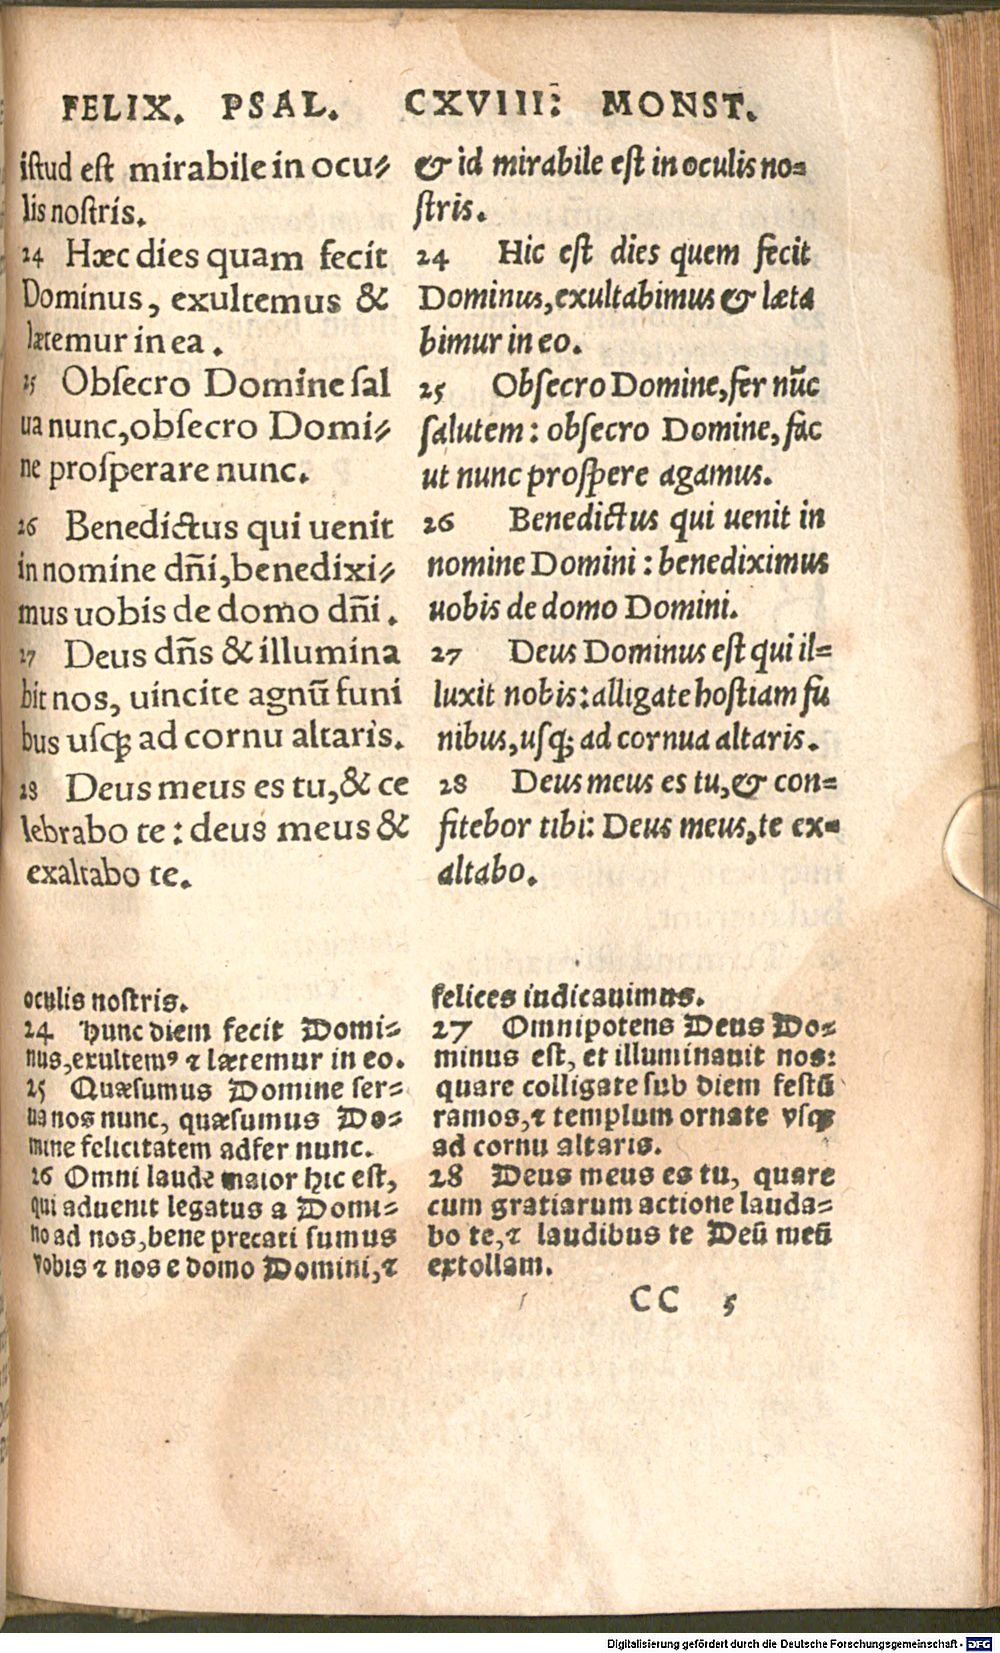 FELIX. PSAL. CXVIII: MONST.
istud est mirabile in ocu-
lis nostris.
24 Hæc dies quam fecit
Dominus, exultemus &
lætemur in ea.
25 Obsecro Domine sal
ua nunc, obsecro Domi-
ne prosperare nunc.
26 Benedictus qui uenit
in nomine dñi, benedixi-
mus uobis de domo dñi.
27 Deus dñs & illumina
bit nos, uincite agnũ funi
bus usq; ad cornu altaris.
28 Deus meus es tu, & ce
lebrabo te: deus meus &
exaltabo te.
& id mirabile est in oculis no-
stris.
24 Hic est dies quem fecit
Dominus, exultabimus & læta
bimur in eo.
25 Obsecro Domine, fer nũc
salutem: obsecro Domine, fac
ut nunc prospere agamus.
26 Benedictus qui uenit in
nomine Domini: benediximus
uobis de domo Domini.
27 Deus Dominus est qui il-
luxit nobis: alligate hostiam fu
nibus, usq; ad cornua altaris.
28 Deus meus es tu, & con-
fitebor tibi: Deus meus, te ex-
altabo.
oculis nostris.
24 Hunc diem fecit Domi-
nus, exultemꝰ ⁊ lætemur in eo.
25 Quæsumus Domine ser-
ua nos nunc, quæsumus Do-
mine felicitatem adfer nunc.
26 Omni laude maior hic est,
qui aduenit legatus a Domi-
no ad nos, bene precati sumus
vobis ⁊ nos e domo Domini, ⁊
felices indicauimus.
27 Omnipotens Deus Do-
minus est, et illuminauit nos:
quare colligate sub diem festũ
ramos, ⁊ templum ornate vsq;
ad cornu altaris.
28 Deus meus es tu, quare
cum gratiarum actione lauda-
bo te, ⁊ laudibus te Deũ meũ
extollam.
CC 5
Digitalisierung gefördert durch die Deutsche Forschungsgemeinschaft - DFG